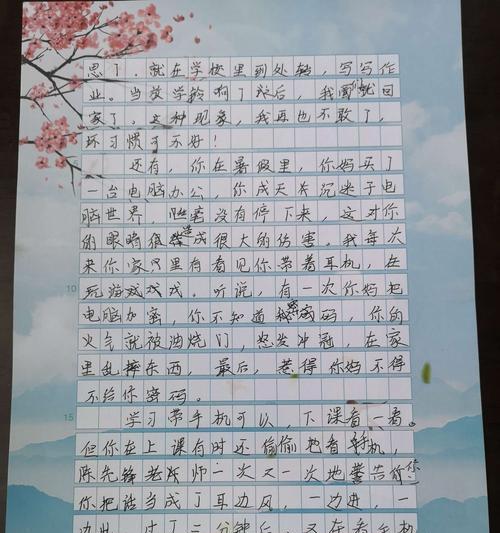 思了，就在学校里到处转，写写作
业。当放学铃响了以后，我们就回
家了，这种现象，我再也不敢了，
坏习惯了不好！
还有，你在暑假里，你妈买了
一台电脑办公，你成天天沉迷于电
脑世界，没有停下来，这对你
的眼睛很造成很大的伤害。我每次
来你家只里有看见你带着耳机，在
10 玩游戏戏戏。听说，有一次你妈把
电脑加密，你不知道密码，你的
火气就被油烧们，怒发冲冠，在家
里乱摔东西，最后，惹得你妈不得
不给你密码。
15 学习带手机可以，下课看一看。
但你在上课有时还偷偷把看手机，
陈先锋老师一次又一次地警告你，
你把话当成了耳边风，一边进，一
边出，过了三分钟后，又在看手机